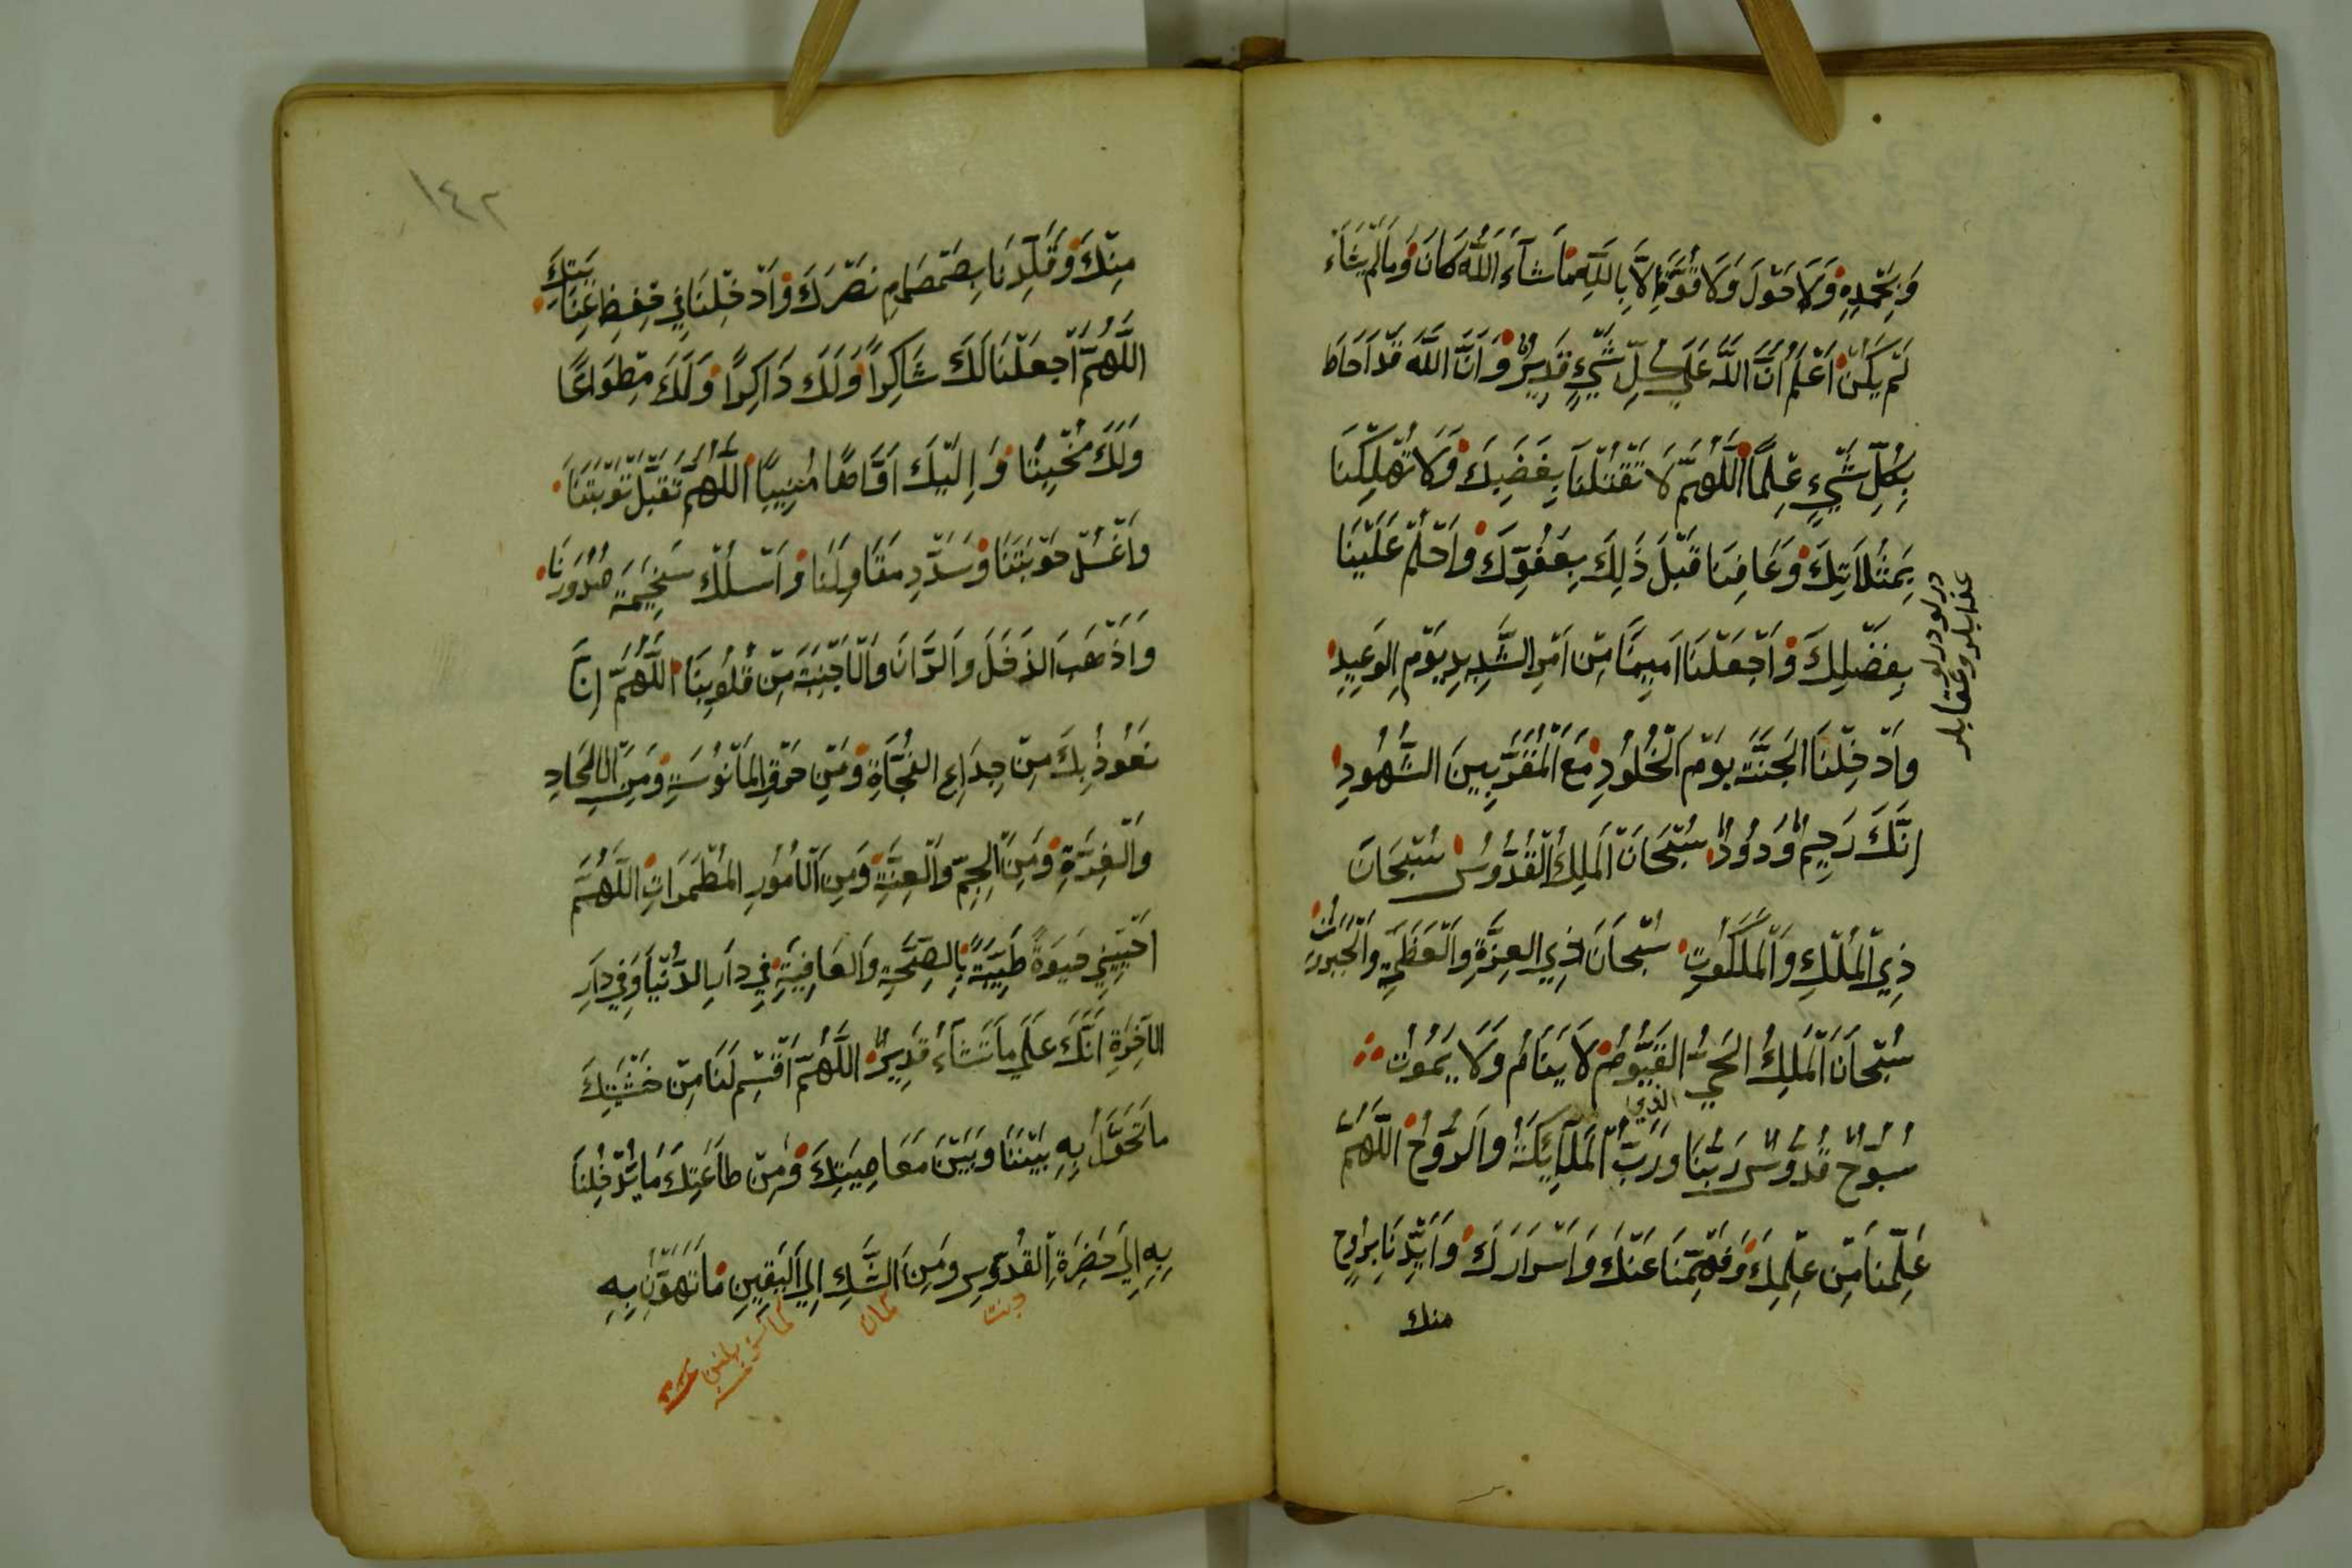 وَبِحَمْدِهِ وَلَا حَوْلَ وَلَا قُوَّةَ اِلَّا بِاللّٰهِ مَا شَآءَ اللّٰهُ كَانَ وَمَا لَمْ يَشَاءْ
لَمْ يَكُنْ اَعْلَمُ اَنَّ اللّٰهَ عَلَي كُلِّ شَيْءٍ قَدِيرٌ وَاَنَّ اللّٰهَ قَدْ اَحَاطَ
بِكُلِّ شَيْءٍ عِلْمًا اَللّٰهُمَّ لَا تَقْتُلْنَا بِغَضَبِكَ وَلَا تُهْلِكْنَا
بِمَثُلَاتِكَ وَعَافِنَا قَبْلَ ذَلِكَ بِعَفْوِكَ وَاحْلُمْ عَلَيْنَا
بِفَضْلِكَ وَاجْعَلْنَا اٰمِينًا مِنْ اَمْرِ الشَّدِيدِ يَوْمِ الوَعِيدِ
وَاَدْخِلْنَا الجَنَّةَ يَوْمَ الْخُلُودِ مَعَ الْمُقَرَّبِينَ الشُّهُودِ
اِنَّكَ رَحِيمٌ وَدُودٌ سُبْحَانَ الْمَلِكِ الْقُدُّوسِ سُبْحَانَ
ذِي الْمُلْكِ وَالْمَلَكُوتِ سُبْحَانَ ذِي العِزَّةِ وَالْعَظَمَةِ وَالْجَبَرُوتِ
سُبْحَانَ الْمَلِكِ الحَيِّ القَيُّومِ الذي لَا يَنَامُ وَلَا يَمُوتُ
سُبُّوحٌ قُدُّوسٌ رَبُّنَا وَرَبُّ الْمَلَآئِكَةِ وَالرُّوحِ اَللّٰهُمَّ
عَلِّمْنَا مِنْ عِلْمِكَ وَفَهِّمْنَا عَنْكَ وَاَسْرَارَكَ وَاَيِّدْنَا بِرُوحٍ
منك
١٤٢
مِنْكَ وَقَلِّدْنَا بِصَمْصَامِ نَصْرِكَ وَاَدْخِلْنَا فِي حِفْظِ عِنَايَتِكَ
اَللّٰهُمَّ اجْعَلْنَا لَكَ شَاكِرًا وَلَكَ ذَاكِرًا وَلَكَ مِطْوَاعًا
وَلَكَ مُخْبِتًا وَاِلَيْكَ اَوَّاهًا مُنِيبًا اَللّٰهُمَّ تَقَبَّلْ تَوْبَتَنَا
وَاغْسِلْ حَوْبَتَنَا وَسَدِّدْ مَقَاوِلَنَا وَاسْلُلْ سَخِيمَةَ صُدُورِنَا
وَاَذْهِبِ الذَحَلَ وَالرَّانَ وَالْاَجِنَّةَ مِنْ قُلُوبِنَا اَللّٰهُمَّ اِنَّا
نَعُوذُ بِكَ مِنْ جِدَاعِ الفُجَّاةِ وَمِنْ حَرَقِ المَأْنُوسَةِ وَمِنَ الْاَلْحَادِ
وَالْغِرَّةِ وَمِنَ الجِمِّ وَالعِنَّةِ وَمِنَ الْاُمُورِ المُطَمَّرَاتِ اَللّٰهُمَّ
اَحْيِينِي حَيٰوةً طَيِّبَةً بِالصِحَّةِ وَالعَافِيَةِ فِي دَارِ الدُّنْيَا وَفِي دَارِ
الآخِرَةِ اِنَّكَ عَلَي مَا تَشَآءُ قَدِيرٌ اَللّٰهُمَّ اقْسِمْ لَنَا مِنْ خَشْيَتِكَ
مَا تَحُولُ بِهِ بَيْنَنَا وَبَيْنَ مَعَاصِيَتِكَ وَمِنْ طَاعَتِكَ مَا تُدْخِلُنَا
بِهِ اِلَي حَضِرَةِ القُدُّوسِ وَمِنَ الشَّكِ اِلَي الْيَقِينِ مَا تُهَوِّنُ بِهِ